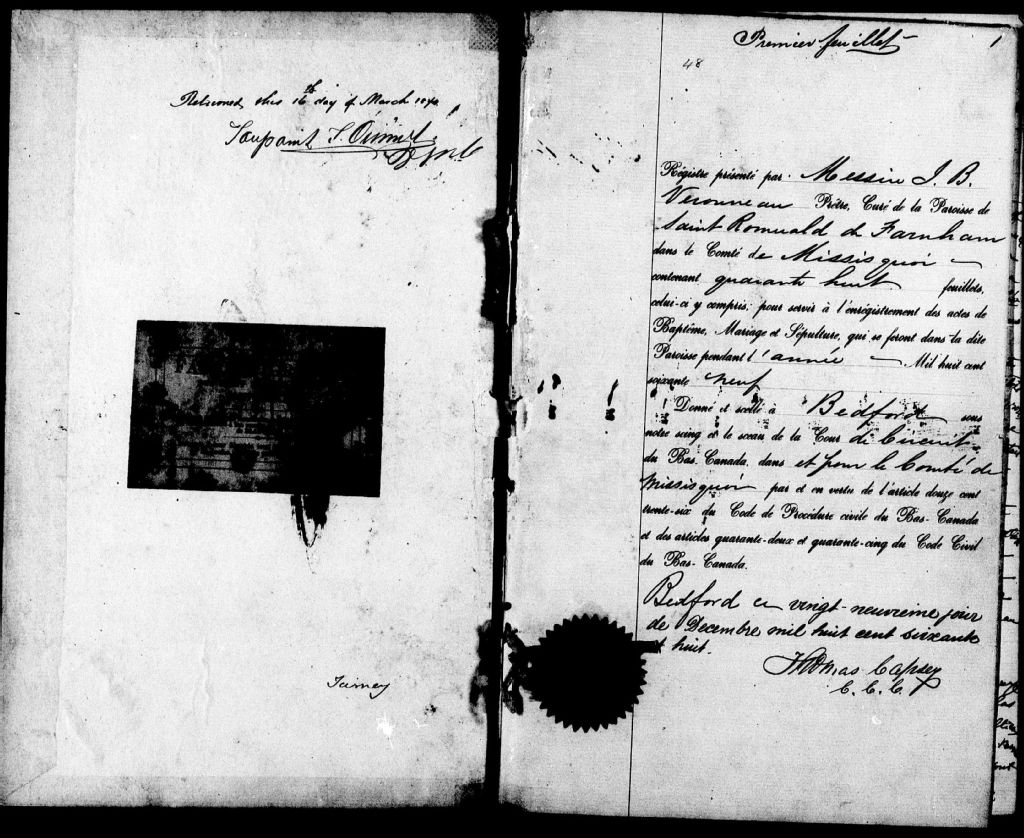 Returned this 16th day of March 1870
Premier feuillet
1
48
Régistre présenté par Messire J. B.
Veronneau Prêtre, Curé de la Paroisse de
Saint Romuald de Farnham
dans le Comté de Missisquoi —
contenant quarante huit feuillets,
celui-ci y compris; pour servir à l'enrégistrement des actes de
Baptême, Mariage et Sépulture, qui se feront dans la dite
Paroisse pendant l'année — Mil huit cent
soixante neuf
Donné et scellé à Bedford sous
notre seing et le sceau de la Cour de Circuit
du Bas-Canada, dans et pour le Comté de
Missisquoi par et en vertu de l'article douze cent
trente-six du Code de Procédure civile du Bas-Canada
et des articles quarante-deux et quarante-cinq du Code Civil
du Bas-Canada.
Bedford ce vingt-neuvieme jour
de Decembre mil huit cent soixante
et huit.
Thomas Capsey
C. C. C.